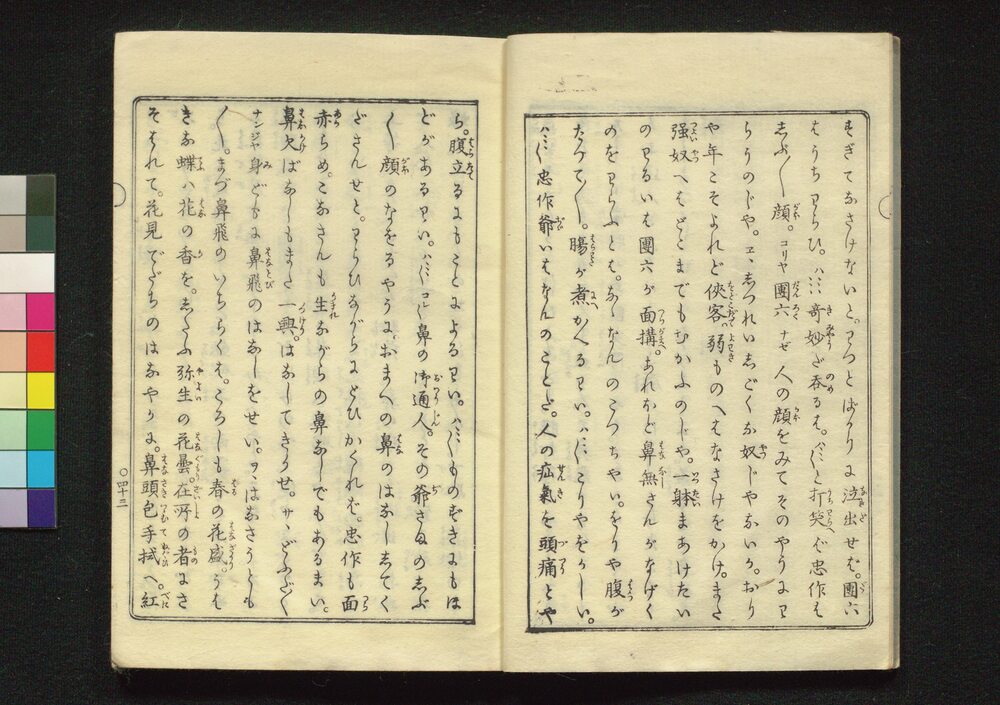 すぎてなさけないと。わつとばかりに泣出せば。團六
はうちわらひ。ハヽヽヽ奇妙だ呑るは。ハヽヽと打笑へば忠作も
しぶ〳〵顔。コリヤ團六ナゼ人の顔をみてそのやうにわ
らうのじや。ヱヽしつれいしごくな奴じやないか。おり
や年こそよれど俠客。弱ものへはなさけをかけ。また
強奴へはどこまでもむかふのじや。一躰まあけたい
のわるいは團六が面搆。あれほど鼻無さんがなげく
のをわらふとは。あゝなんのこつちやい。をりや腹が
たつて〳〵。膓が煮かへるわい。ハヽヽこりやをかしい。
ハヽヽ忠作爺いはなんのことだ。人の疝氣を頭痛とや
ら。腹立るにもことによるわい。ハヽヽものずきにもほ
どがあるわい。ハヽヽコレ鼻の御通人。その爺さまのしぶ
〳〵顔のなをるやうに。おまへの鼻のはなししてく
ださんせと。わらひながらにとひかくれば。忠作も面
赤らめ。こなさんも生ながらの鼻なしでもあるまい。
鼻欠ばなしもまた一興。はなしてきかせ。サヽどふだ〳〵
ナンジヤ身どもに鼻飛のはなしをせい。ヲヽはなさうとも
〳〵。まづ鼻飛のいちらくは。ころしも春の花盛。うは
きな蝶ハ花の香を。したふ弥生の花曇。在所の者にさ
そはれて。花見でだちのはなやかに。鼻頭包手拭へ。紅
〇四十三